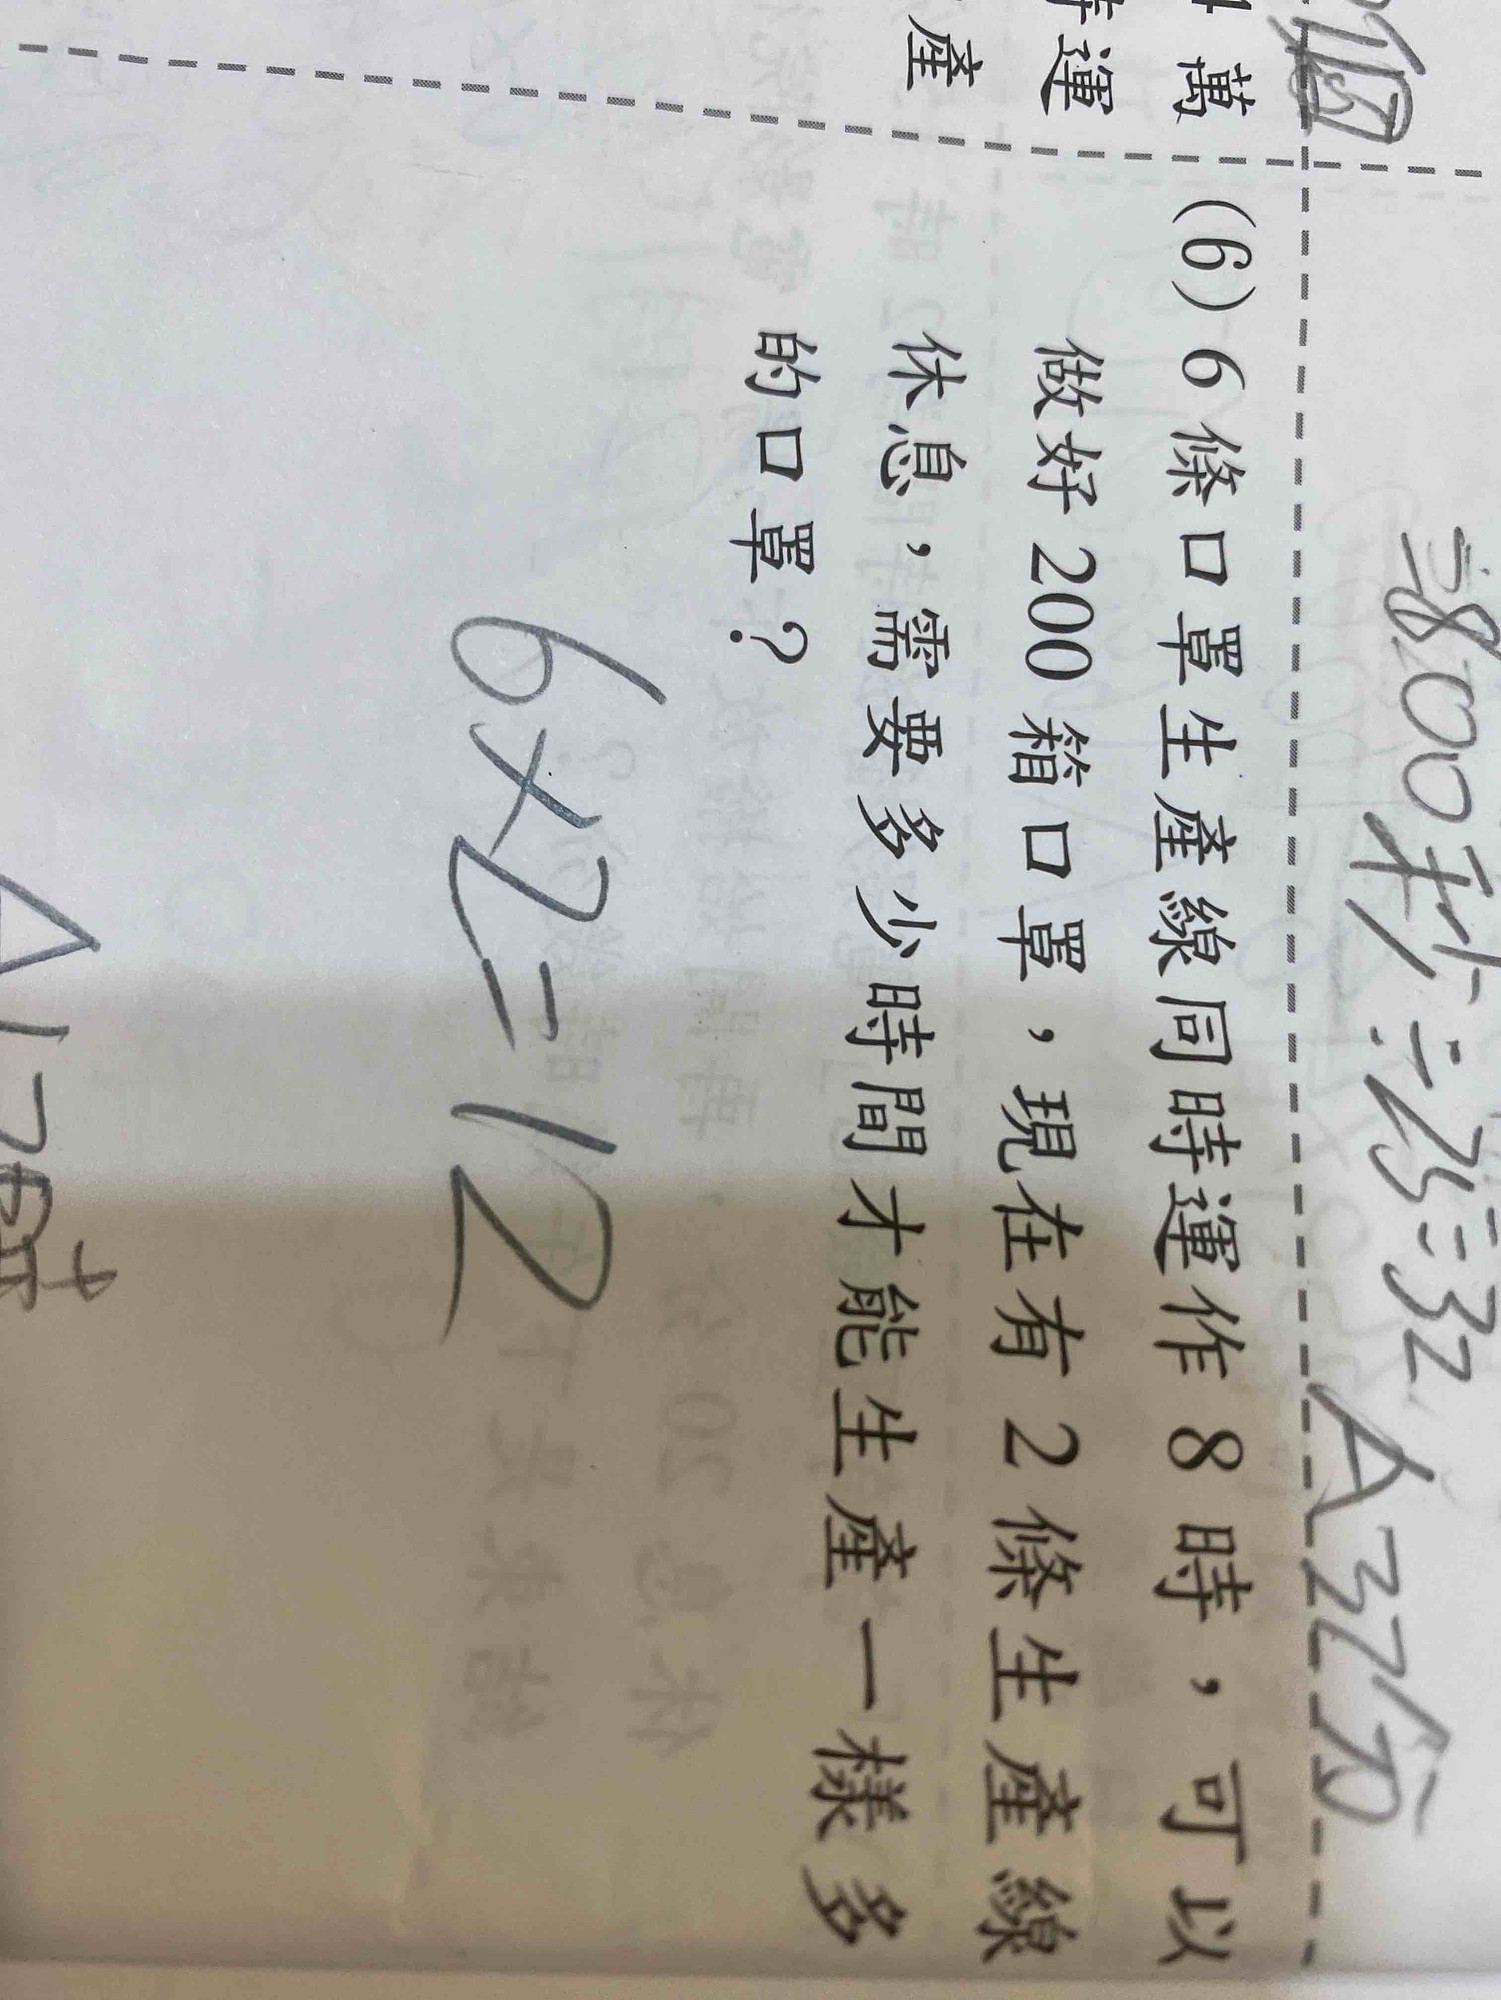 個
萬
運
產
=800秒÷25=32 A32分
(6) 6 條口罩生產線同時運作 8 時，可以
做好 200 箱口罩，現在有 2 條生產線
休息，需要多少時間才能生產一樣多
的口罩？
6×2=12
A12時